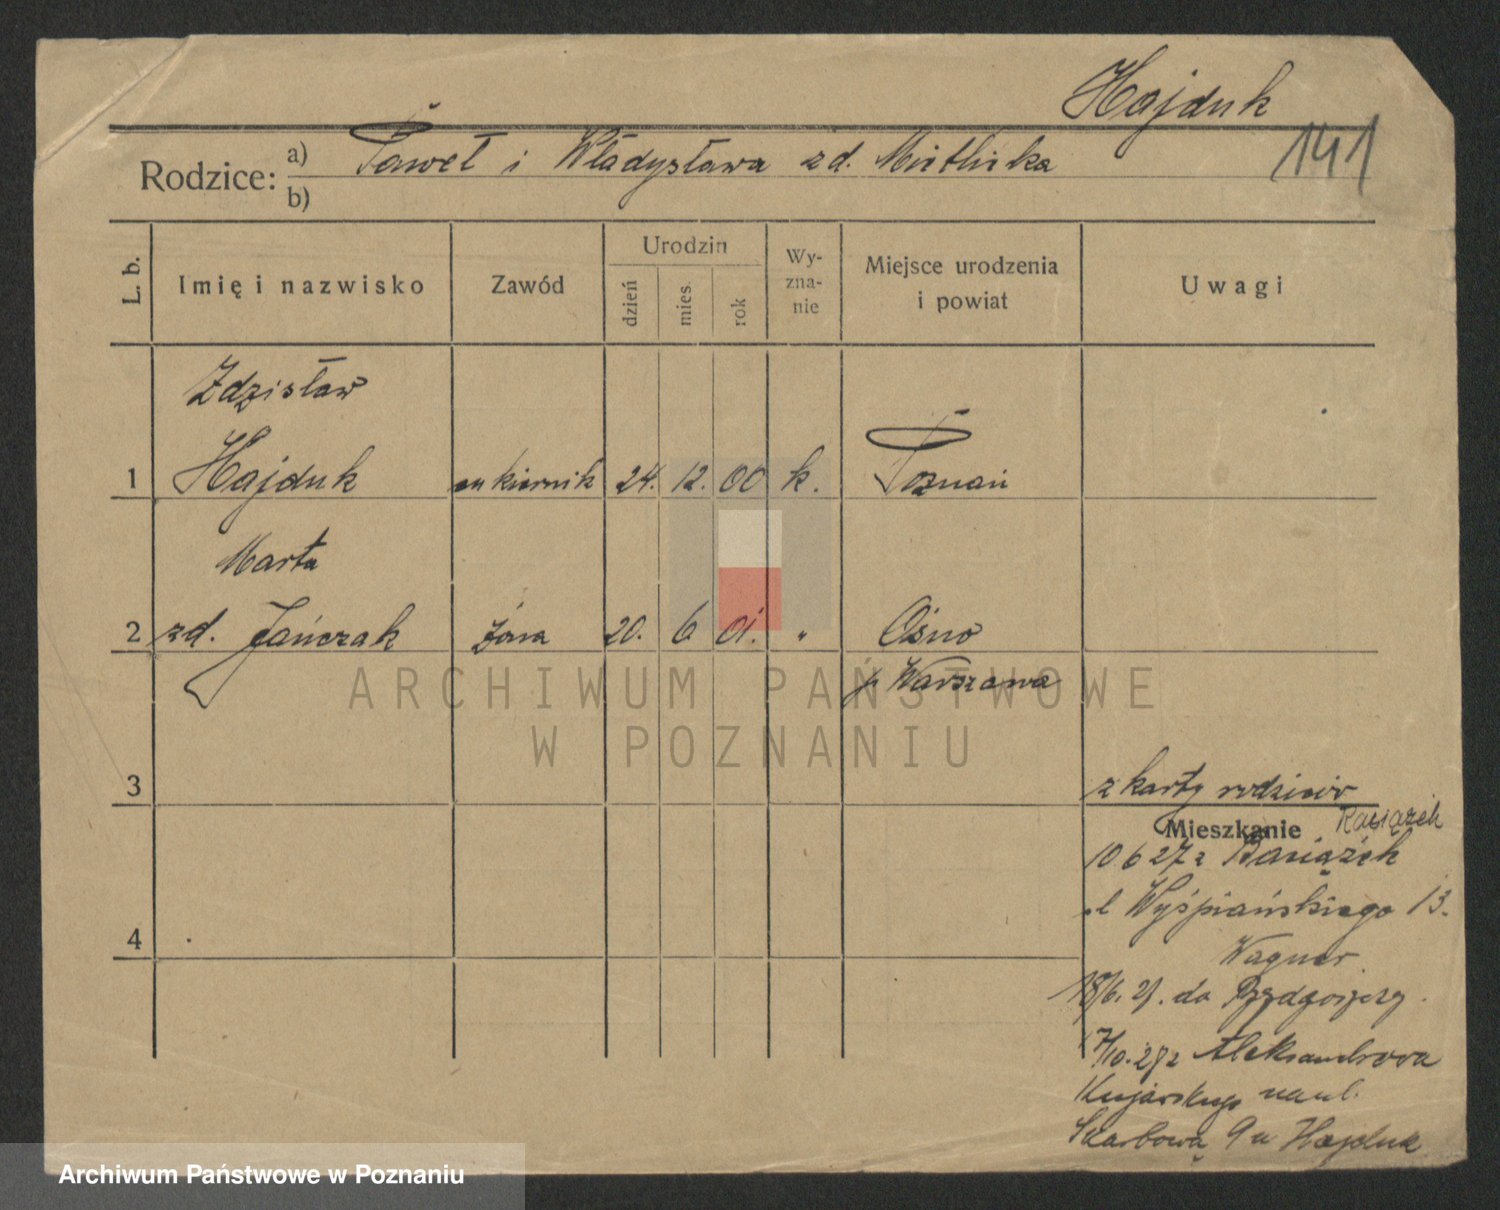 Hajduk
141
Rodzice: a) Paweł i Władysława zd.
b)
L. b.
Imię i nazwisko
Zawód
Urodzin
dzień
mies.
rok
Wy-
zna-
nie
Miejsce urodzenia
i powiat
Uwagi
Zdzisław
1 Hajduk cukiernik 24. 12. 00 k. Poznań
Marta
2 zd. Jańczak żona 20. 6 01. " Ośno
p. Warszawa
ARCHIWUM PAŃSTWOWE
W POZNANIU
3
z karty rodziców
Mieszkanie
10 6 27 z
ul Wyśpiańskiego 13.
4
Wagner
18/6. 27. do Bydgoszczy.
7/10. z Aleksandrowa
Kujawskiego na ul.
Skarbową 9 u Hajduk
Archiwum Państwowe w Poznaniu